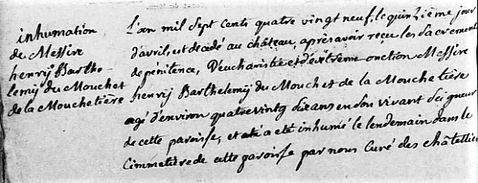 inhumation
de Messire
henrij Bartho
lemij du Mouchet
de la Mouchetière
L'an mil Sept Cents quatre vingt neuf, le quinzième jour
d'avril, est décédé au château, après avoir reçu les sacrements
de pénitence, D'eucharistie et d'extrême onction Messire
henrij Barthelemij du Mouchet de la Mouchetière
agé d'environ quatre vingt dix ans en son vivant Seigneur
de cette paroisse, et a été inhumé le lendemain dans le
Cimmetière de cette paroisse par nous Curé des Châtelliers